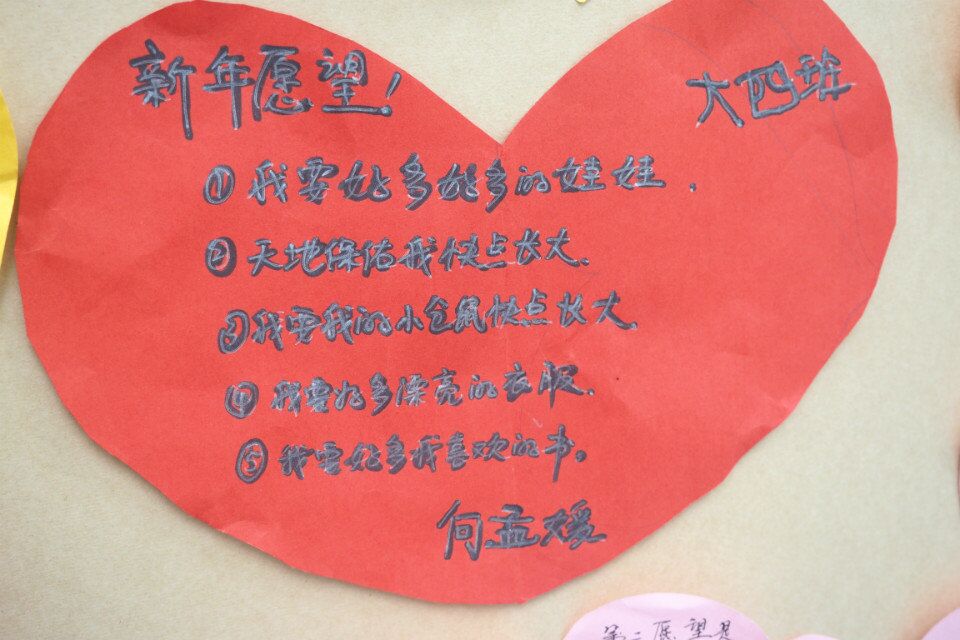 新年愿望！
大四班
①我要好多好多的娃娃.
②天地保佑我快点长大.
③我要我的小仓鼠快点长大.
④我要好多漂亮的衣服.
⑤我要好多我喜欢的书。
何孟媛
第二愿望是